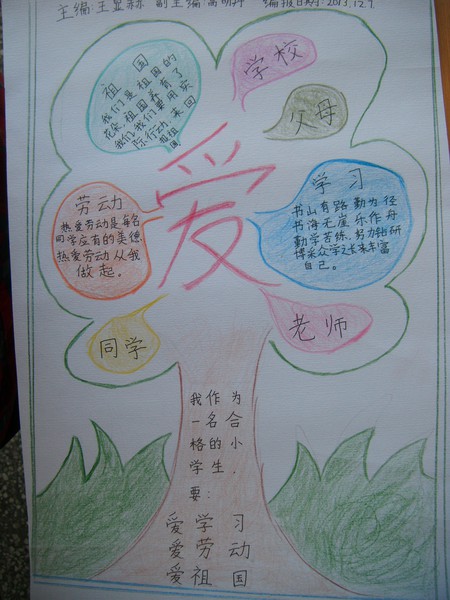 主编:王显赫 副主编:高明婷 编报日期:2013.12.9.
祖国
我们是祖国的
花朵,祖国养育了
我们,我们要用实
际行动来回
报祖
国
学校
父母
爱
劳动
热爱劳动是每名
同学应有的美德
热爱劳动从我
做起。
学习
书山有路勤为径
书海无崖乐作舟
勤学苦练,努力钻研
博采众学之长来丰富
自己。
同学
老师
我作为
一名合
格的小
学生.
要:
爱学习
爱劳动
爱祖国